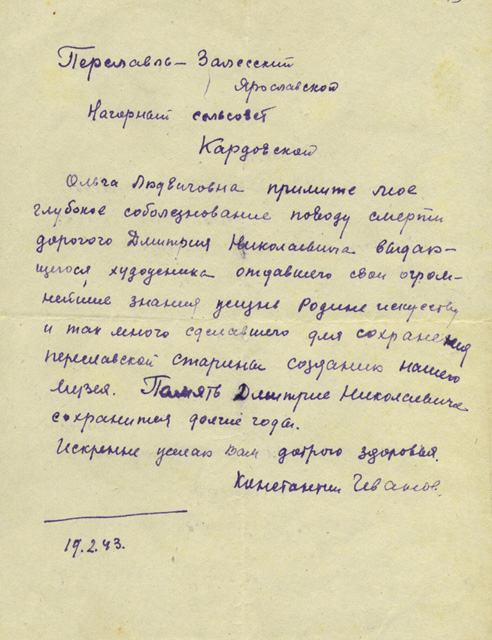 Переславль – Залесский
Ярославской
Нагорный сельсовет
Кардовской
Ольга Людвиговна примите мое
глубокое соболезнование поводу смерти
дорогого Дмитрия Николаевича выдаю-
щегося художника отдавшего свои огром-
нейшие знания жизнь Родине искусству
и так много сделавшего для сохранения
переславской старины созданию нашего
музея. Память Дмитрие Николаевиче
сохранится долгие годы.
Искренне желаю Вам доброго здоровья.
Константин Иванов.
19.2.43.